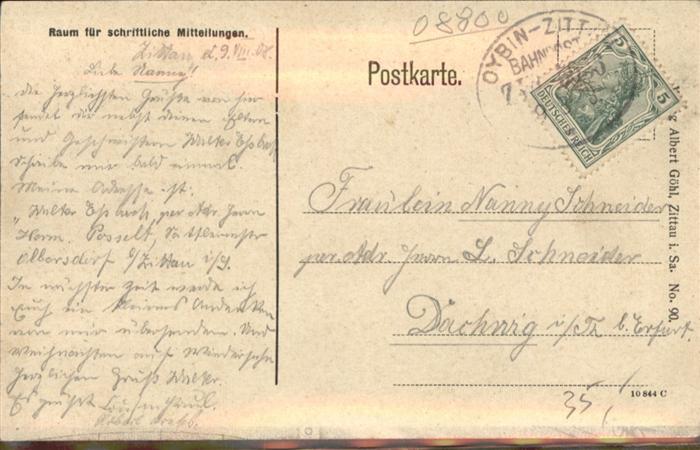 Raum für schriftliche Mitteilungen.
Zittau d. 9. VIII. 08.
Liebe Nanny!
Die herzlichsten Grüße von hier
sendet dir nebst deinen Eltern
und Geschwistern Walter
schreibe mir bald einmal.
Meine Adresse ist:
Walter per Adr. Herrn
Herm. Posselt, Sattlermeister
Olbersdorf b/Zittau i/S.
In nächster Zeit werde ich
Euch ein kleines Andenken
von mir übersenden. Und
Weihnachten auf Wiedersehn
Herzlichen Gruß Walter.
Es grüßt
08800
Postkarte.
OYBIN-ZITT
BAHNPOST
5
5
DEUTSCHES REICH
Fräulein Nanny Schneider
per Adr. Herrn L. Schneider
Dachwig i/Th. b. Erfurt.
Albert Göhl, Zittau i. Sa. No. 90.
10 844 C
35,